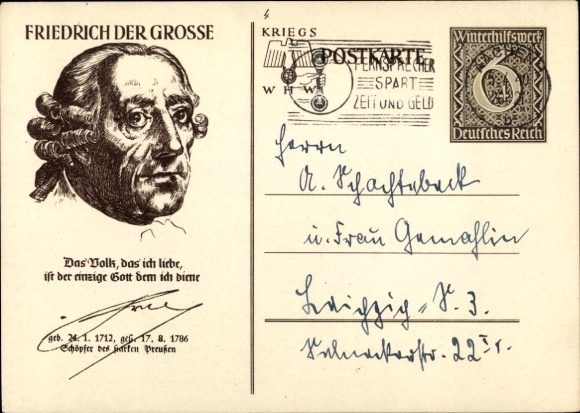 FRIEDRICH DER GROSSE
Das Volk, das ich liebe,
ist der einzige Gott dem ich diene
geb. 24. 1. 1712, gest. 17. 8. 1786
Schöpfer des starken Preußen
KRIEGS
WHW
POSTKARTE
FERNSPRECHER
SPART
ZEIT UND GELD
Winterhilfswerk
6
Deutsches Reich
Herrn
A. Schachtebeck
u. Frau Gemahlin
Leipzig S. 3.
22 I r.